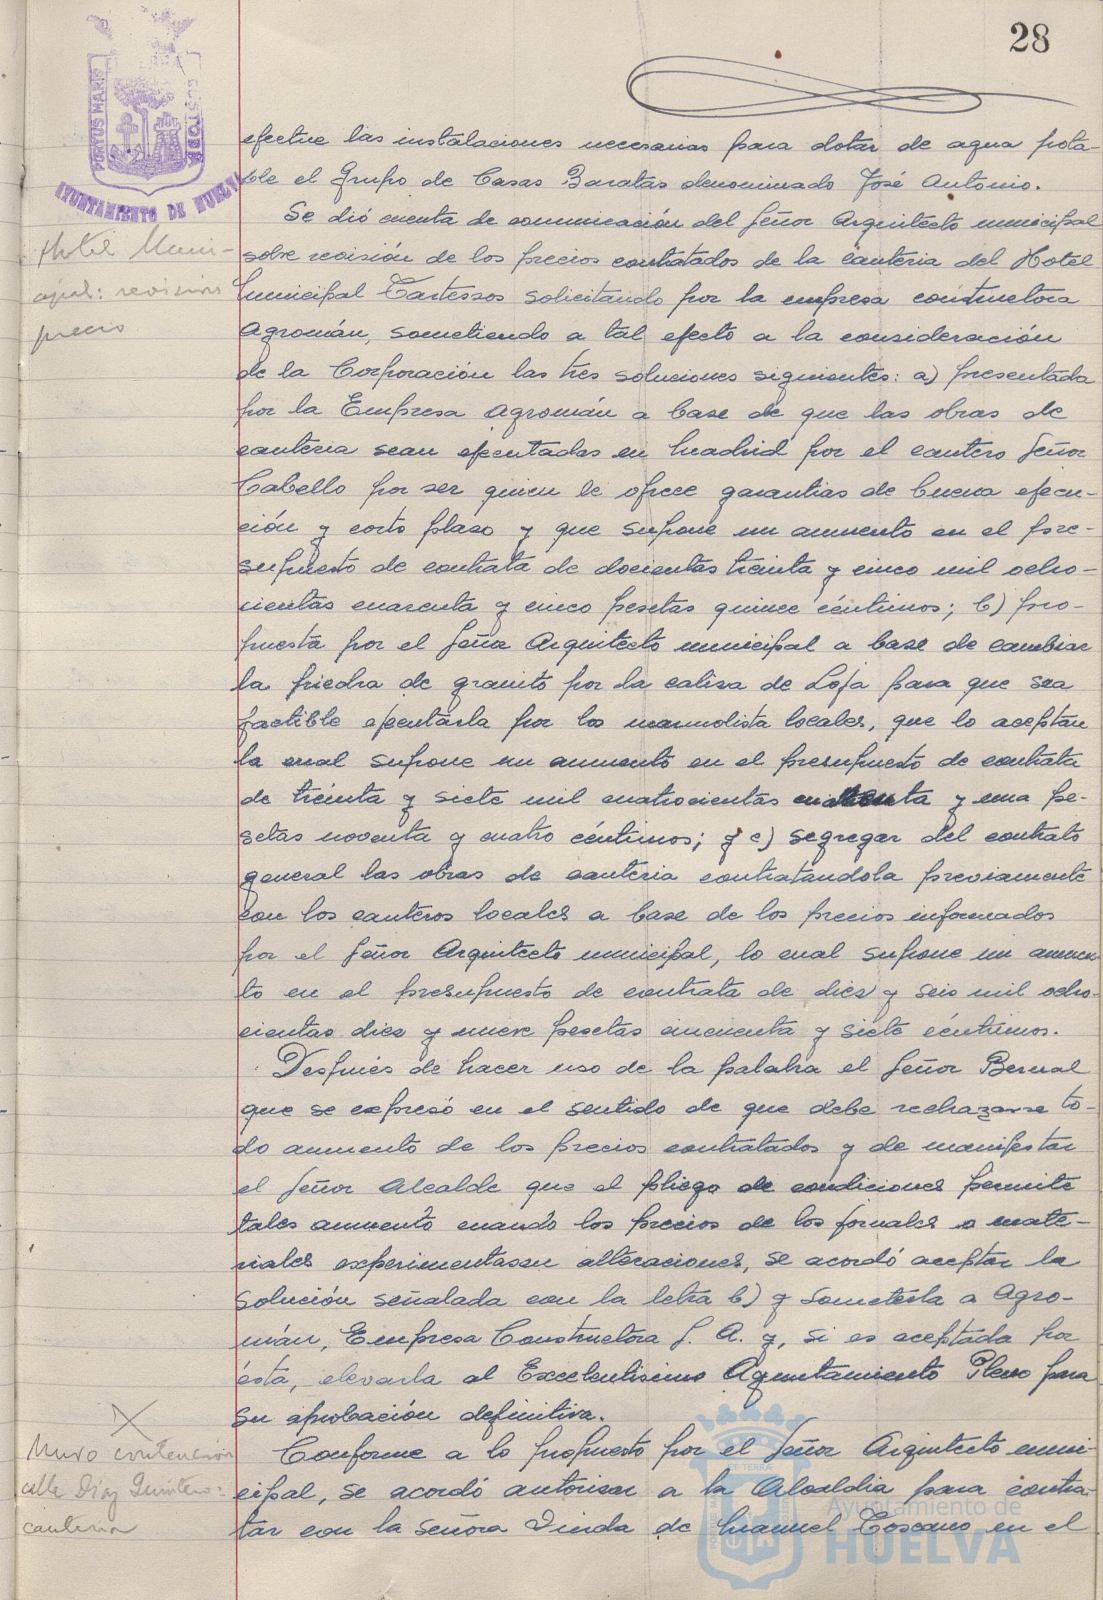 28
PORTUS MARIS
CUSTODIA
AYUNTAMIENTO DE HUELVA
efectue las instalaciones necesarias para dotar de agua pota-
ble el Grupo de Casas Baratas denominado José Antonio.
Se dió cuenta de comunicación del Señor Arquitecto municipal
Hotel Muni-
cipal: revisión
precio
sobre revisión de los precios contratados de la cantería del Hotel
Municipal Tartessos solicitando por la empresa constructora
Agromán, sometiendo a tal efecto a la consideración
de la Corporación las tres soluciones siguientes: a) presentada
por la Empresa Agromán a base de que las obras de
cantería sean ejecutadas en Madrid por el cantero Señor
Cabello por ser quien le ofrece garantías de buena ejecu-
ción y corto plazo y que supone un aumento en el pre-
supuesto de contrata de docientas treinta y cinco mil ocho-
cientas cuarenta y cinco pesetas quince céntimos; b) pro-
puesta por el Señor Arquitecto municipal a base de cambiar
la piedra de granito por la caliza de Loja para que sea
factible ejecutarla por los marmolista locales, que lo aceptan
la cual supone un aumento en el presupuesto de contrata
de treinta y siete mil cuatrocientas cuarenta y una pe-
setas noventa y cuatro céntimos; y c) segregar del contrato
general las obras de cantería contratandola previamente
con los canteros locales a base de los precios informados
por el Señor Arquitecto municipal, lo cual supone un aumen-
to en el presupuesto de contrata de diez y seis mil ocho-
cientas diez y nueve pesetas cincuenta y siete céntimos.
Después de hacer uso de la palabra el Señor Bernal
que se expresó en el sentido de que debe rechazarse to-
do aumento de los precios contratados y de manifestar
el Señor Alcalde que el pliego de condiciones permite
tales aumento cuando los precios de los jornales o mate-
riales experimentasen alteraciones, se acordó aceptar la
solución señalada con la letra b) y someterla a Agro-
mán, Empresa Constructora S. A. y, si es aceptada por
ésta, elevarla al Excelentísimo Ayuntamiento Pleno para
su aprobación definitiva.
Muro contención
calle Díaz Quintero:
cantería
Conforme a lo propuesto por el Señor Arquitecto muni-
cipal, se acordó autorizar a la Alcaldía para contra-
tar con la señora Viuda de Manuel Toscano en el
Ayuntamiento de
HUELVA